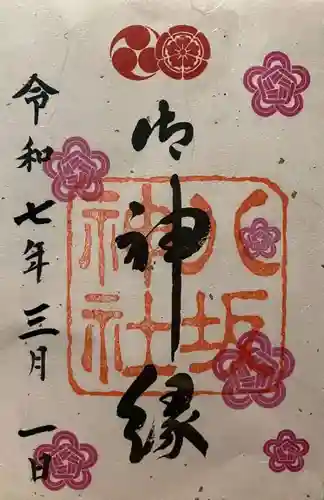 御神縁
八坂神社
令和七年三月一日